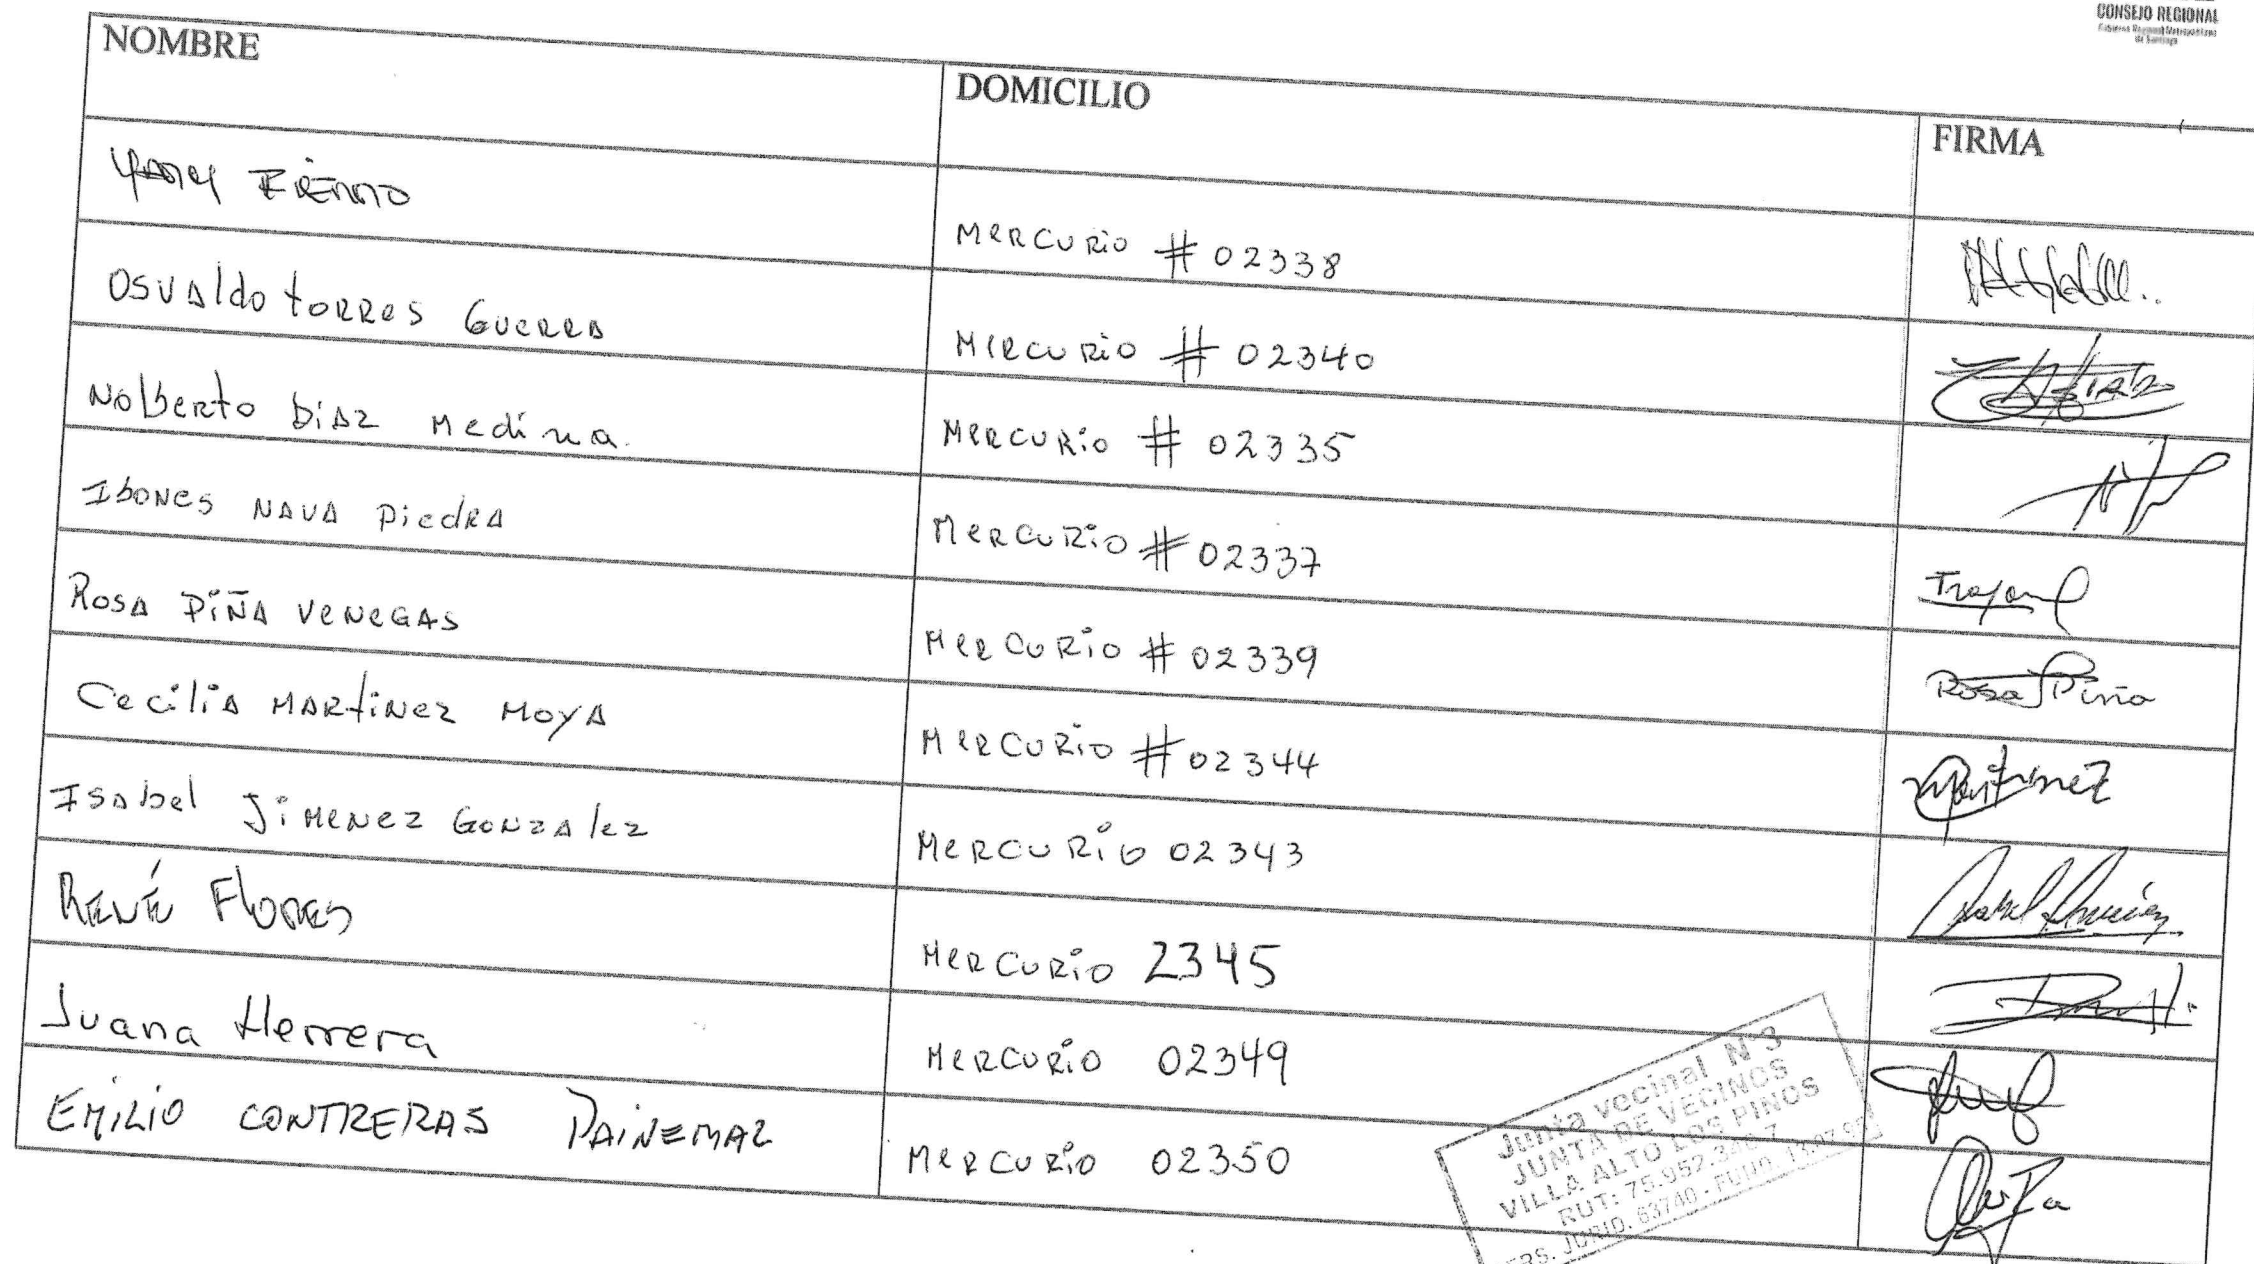 CONSEJO REGIONAL
Gobierno Regional Metropolitano
de Santiago
NOMBRE DOMICILIO FIRMA
MERCURIO # 02338
OSVALDO TORRES GUERRA MERCURIO # 02340
NOLBERTO DIAZ MEDINA. MERCURIO # 02335
IBONES NAVA PIEDRA MERCURIO # 02337
ROSA PIÑA VENEGAS MERCURIO # 02339 Rosa Piña
CECILIA MARTINEZ MOYA MERCURIO # 02344 Martinez
ISABEL JIMENEZ GONZALEZ MERCURIO 02343
RENÉ FLORES MERCURIO 2345
Juana Herrera MERCURIO 02349
EMILIO CONTRERAS PAINEMAL MERCURIO 02350
Junta vecinal N°3
JUNTA DE VECINOS
VILLA ALTO LOS PINOS
RUT: 75.957.
PERS. JURID. 63740 -